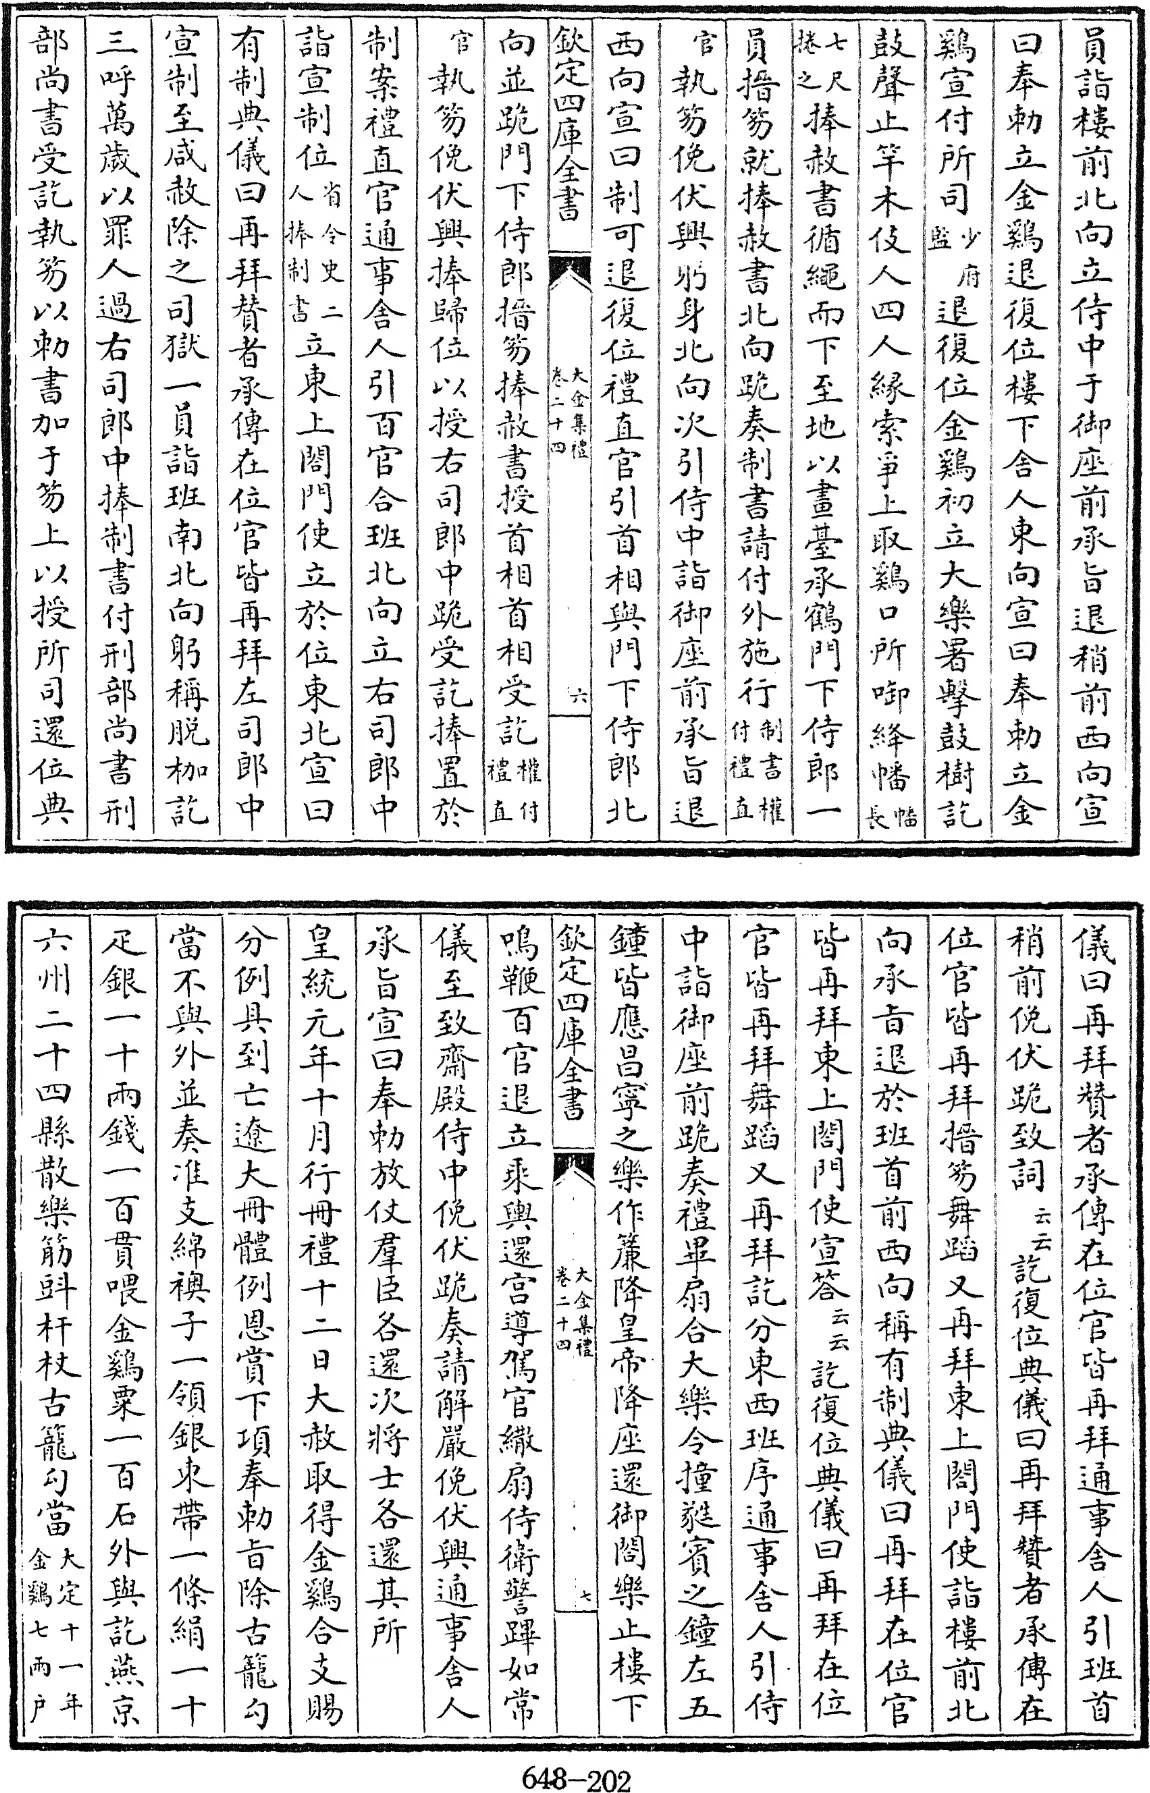 員詣樓前北向立侍中于御座前承旨退稍前西向宣
曰奉勅立金鷄退復位樓下舍人東向宣曰奉勅立金
鷄宣付所司少府監退復位金鷄初立大樂署擊鼓樹訖
鼓聲止竿木伎人四人緣索爭上取鷄口所啣絳幡幡長
七尺捲之捧赦書循繩而下至地以畫臺承鶴門下侍郎一
員搢笏就捧赦書北向跪奏制書請付外施行制書權付禮直
官執笏俛伏興躬身北向次引侍中詣御座前承旨退
西向宣曰制可退復位禮直官引首相與門下侍郎北
欽定四庫全書
大金集禮
卷二十四
六
向並跪門下侍郎搢笏捧赦書授首相首相受訖權付禮直
官執笏俛伏興捧歸位以授右司郎中跪受訖捧置於
制案禮直官通事舍人引百官合班北向立右司郎中
詣宣制位省令史二人捧制書立東上閤門使立於位東北宣曰
有制典儀曰再拜贊者承傳在位官皆再拜左司郎中
宣制至咸赦除之司獄一員詣班南北向躬稱脱枷訖
三呼萬歲以罪人過右司郎中捧制書付刑部尚書刑
部尚書受訖執笏以勅書加于笏上以授所司還位典
儀曰再拜贊者承傳在位官皆再拜通事舍人引班首
稍前俛伏跪致詞云云訖復位典儀曰再拜贊者承傳在
位官皆再拜搢笏舞蹈又再拜東上閤門使詣樓前北
向承旨退於班首前西向稱有制典儀曰再拜在位官
皆再拜東上閤門使宣答云云訖復位典儀曰再拜在位
官皆再拜舞蹈又再拜訖分東西班序通事舍人引侍
中詣御座前跪奏禮畢扇合大樂令撞蕤賓之鐘左五
鐘皆應昌寧之樂作簾降皇帝降座還御閤樂止樓下
欽定四庫全書
大金集禮
卷二十四
七
鳴鞭百官退立乘輿還宮導駕官繖扇侍衛警蹕如常
儀至致齋殿侍中俛伏跪奏請解嚴俛伏興通事舍人
承旨宣曰奉勅放仗羣臣各還次將士各還其所
皇統元年十月行冊禮十二日大赦取得金鷄合支賜
分例具到亡遼大冊體例恩賞下項奉勅旨除古籠勾
當不與外並奏准支綿襖子一領銀束帶一條絹一十
疋銀一十兩錢一百貫喂金鷄粟一百石外與訖燕京
六州二十四縣散樂筋㪷杆杖古籠勾當大定十一年金鷄七兩户
648-202